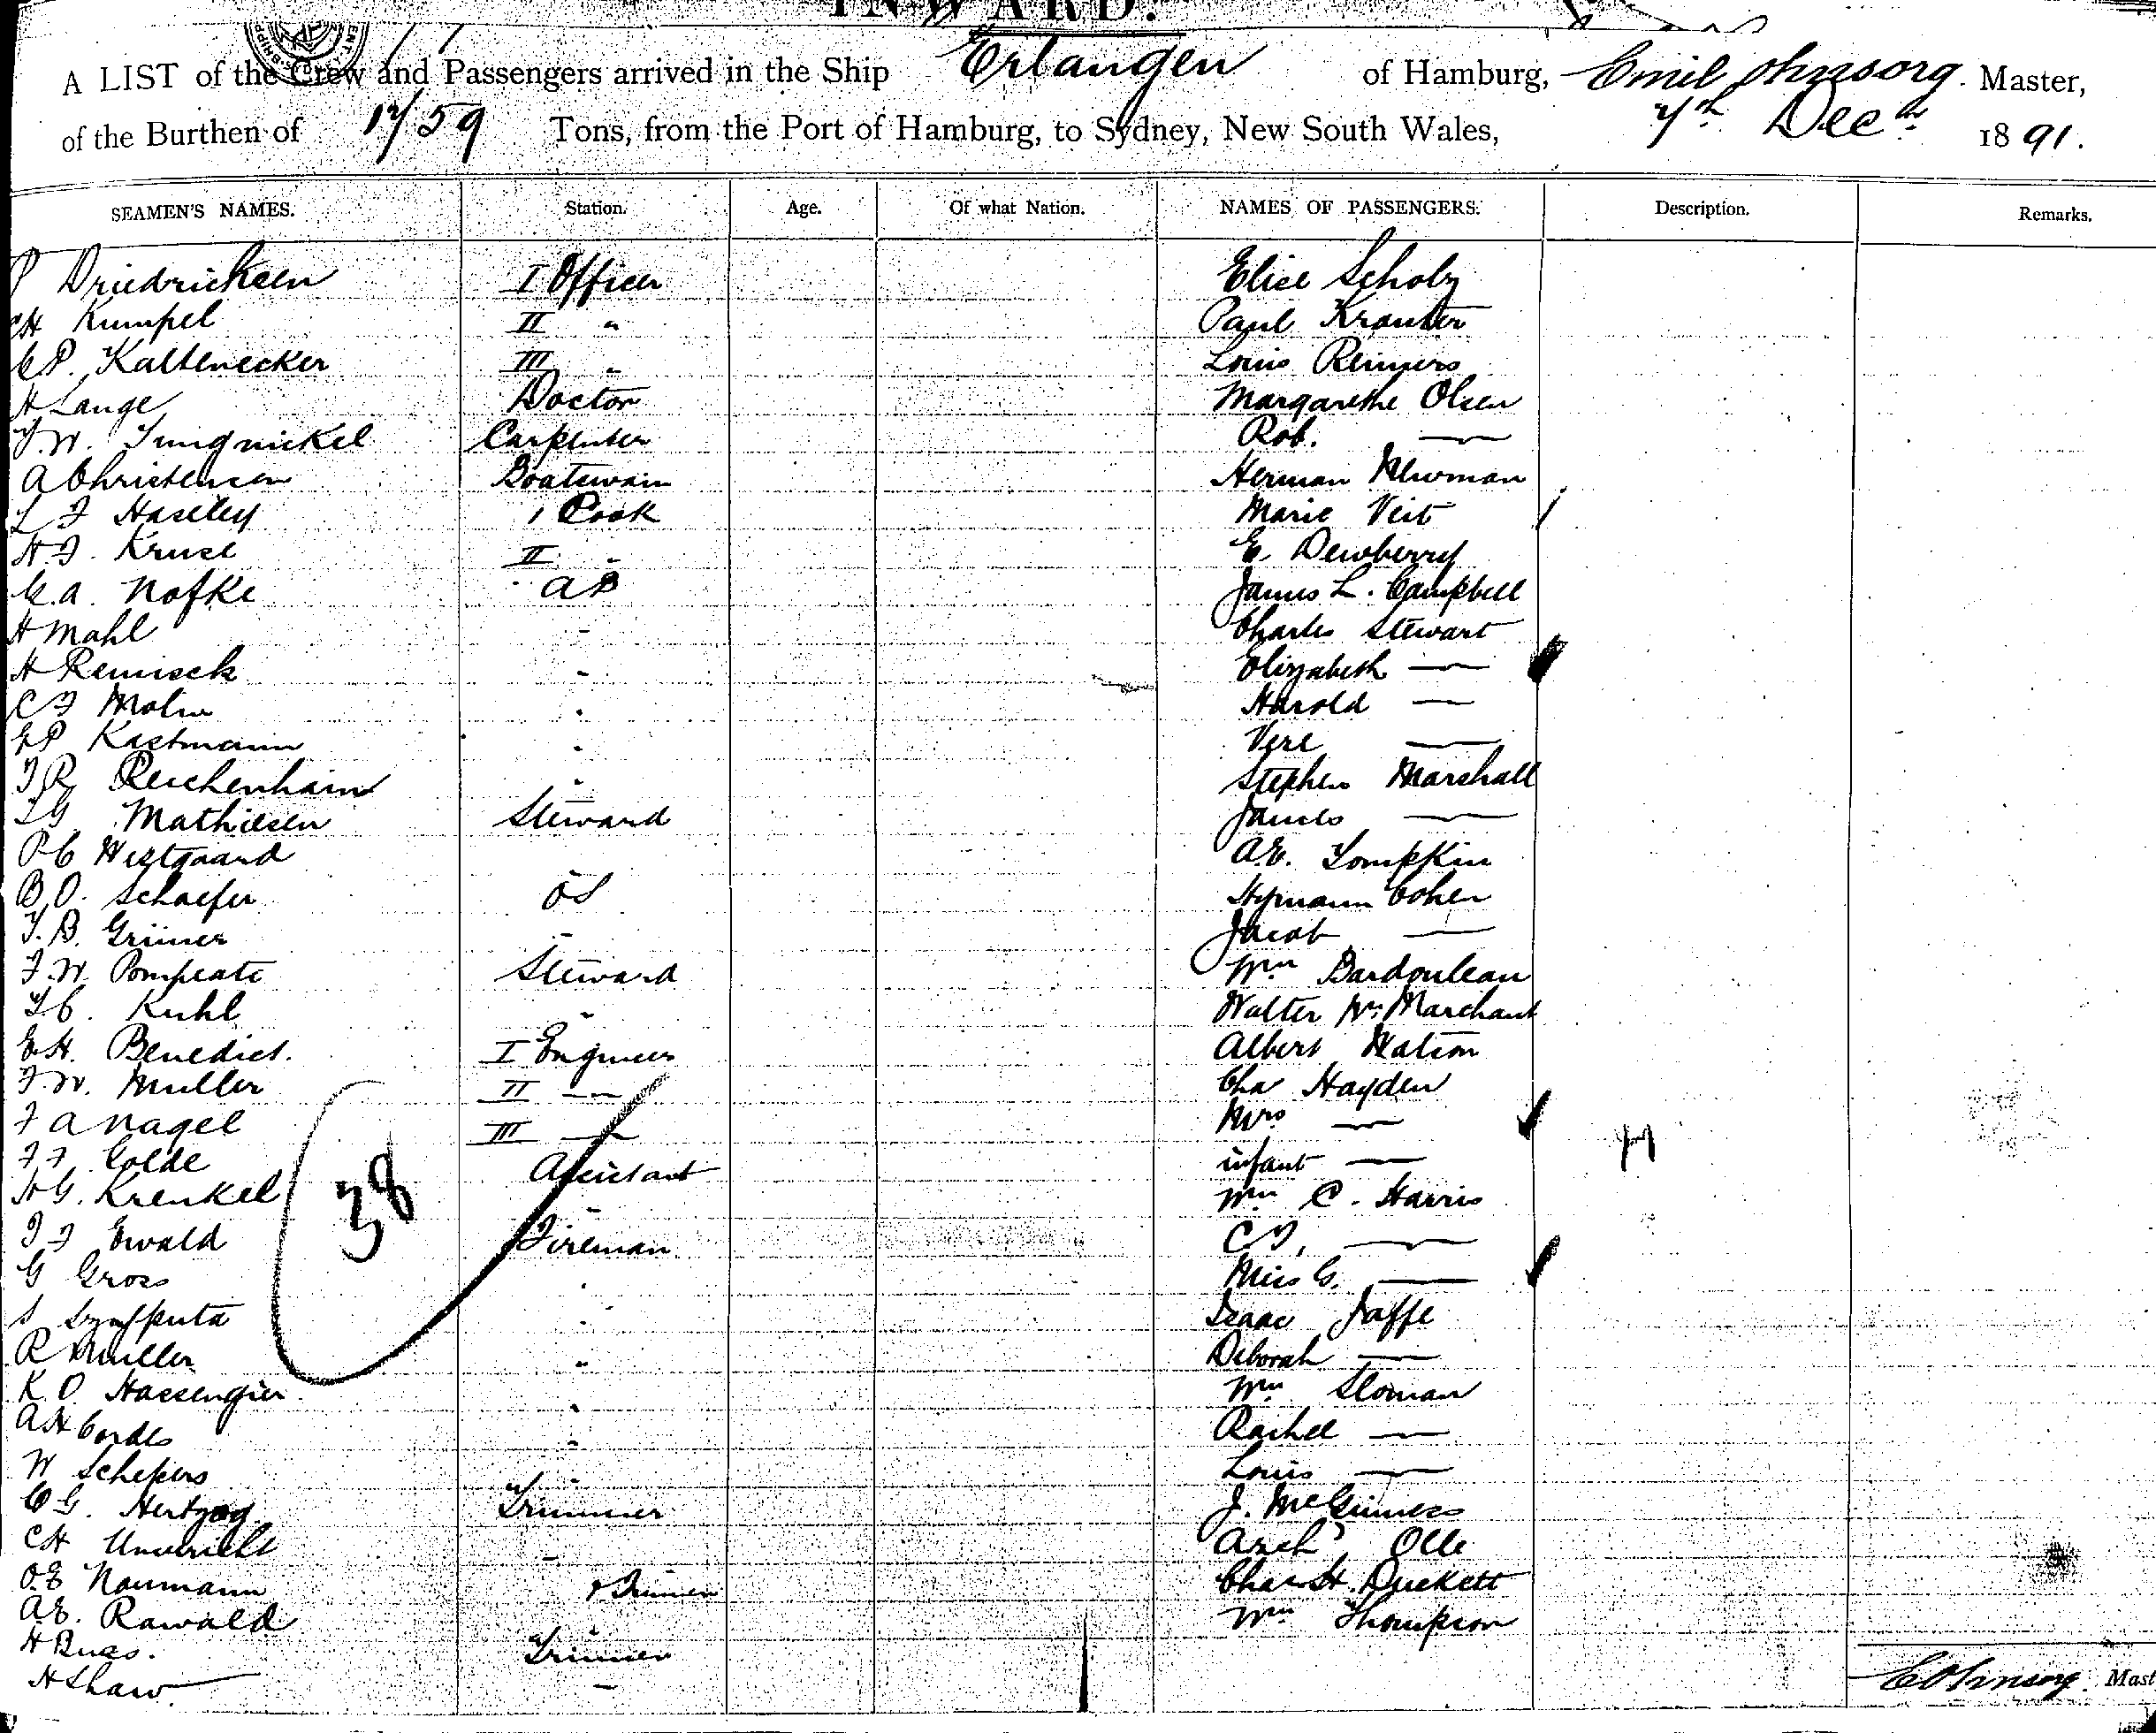 INWARD.
A LIST of the Crew and Passengers arrived in the Ship Erlangen of Hamburg, Emil Ohnsorg. Master,
of the Burthen of 1759 Tons, from the Port of Hamburg, to Sydney, New South Wales, 7th Decr 1891.
SEAMEN'S NAMES. Station. Age. Of what Nation. NAMES OF PASSENGERS. Description. Remarks.
P Driedricksen I Officer Elise Scholz
CH Kumpel II " Paul Krauter
C P. Kaltenecker III " Louis Reimers
H Lange Doctor Margarethe Olsen
F. W. Jungnickel Carpenter Rob. —
A Christensen Boatswain Herman Newman
L F Haseley 1 Cook Marie Veit
H. F. Kruse II " E. Dewberry
E. A. Nofke AB James L. Campbell
H Mahl " Charles Stewart
H Remisch " Elizabeth —
C F Malm " Harold —
E P Kastmann " Vere —
F R Reichenhain " Stephen Marshall
L G Mathiesen Steward James —
P C Westgaard " A. E. Tompkin
B. O. Schaefer OS Hymann Cohen
T. B. Grimer " Jacob —
F. W. Pompeate Steward Wm Bardouleau
L C. Kuhl " Walter W. Marchant
E H. Benedict. I Engineer Albert Watson
F. W. Muller II — Cha Hayden
F A Nagel III — Mrs —
F F Golde Assistant infant —
H G. Krenkel " Wm C. Harris
F F Ewald Fireman C —
G Gross " Miss G. —
S " Isaac Jaffe
R Muller " Deborah —
K. O Hassengier " Wm Sloman
A H Cordes " Rachel —
W Schepers " Louis —
C G. Hertzog Trimmer J. McGinness
CH Unvericht " Arch Olle
O. E Naumann Trimmer Chas H. Duckett
A E. Rawald " Wm Thompson
H Buas. Trimmer
H Shaw. "
38
E Ohnsorg. Mast